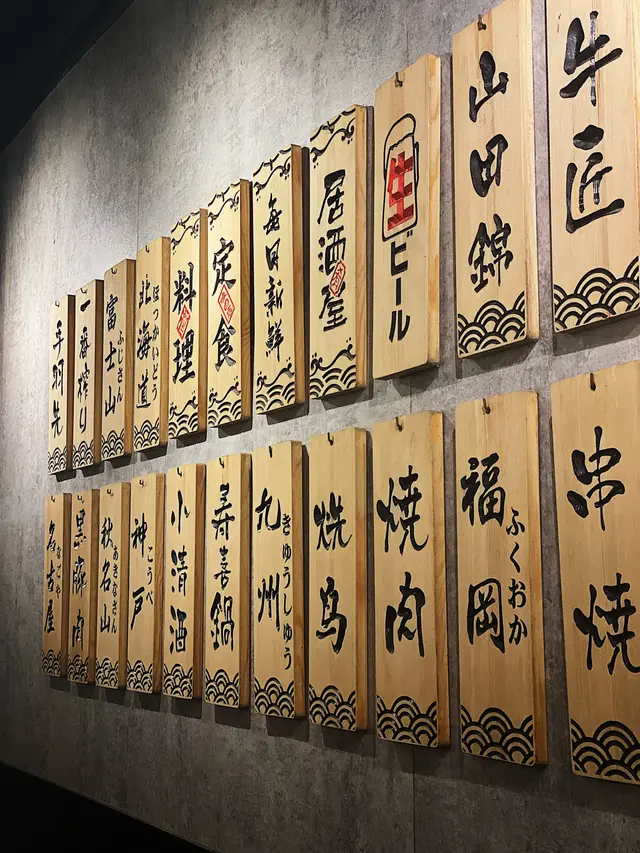 牛匠
山田錦
生ビール
居酒屋
毎日新鮮
定食
料理
北海道
ほっかいどう
富士山
ふじさん
一番搾り
手羽先
串焼
福岡
ふくおか
焼肉
烧鸟
九州
きゆうしゆう
寿喜鍋
小清酒
神戸
こうべ
秋名山
あきなさん
黒豚肉
名古屋
なごや